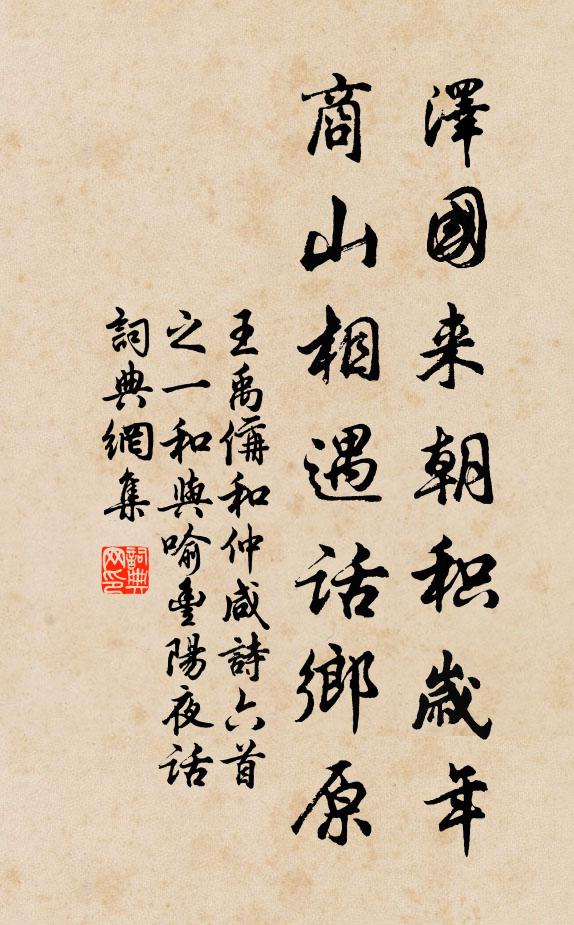 澤國来朝积歲年
商山相遇話鄉原
王禹偁和仲咸詩六首
之一和與喻豐陽夜话
詞典網集
詞典
网印